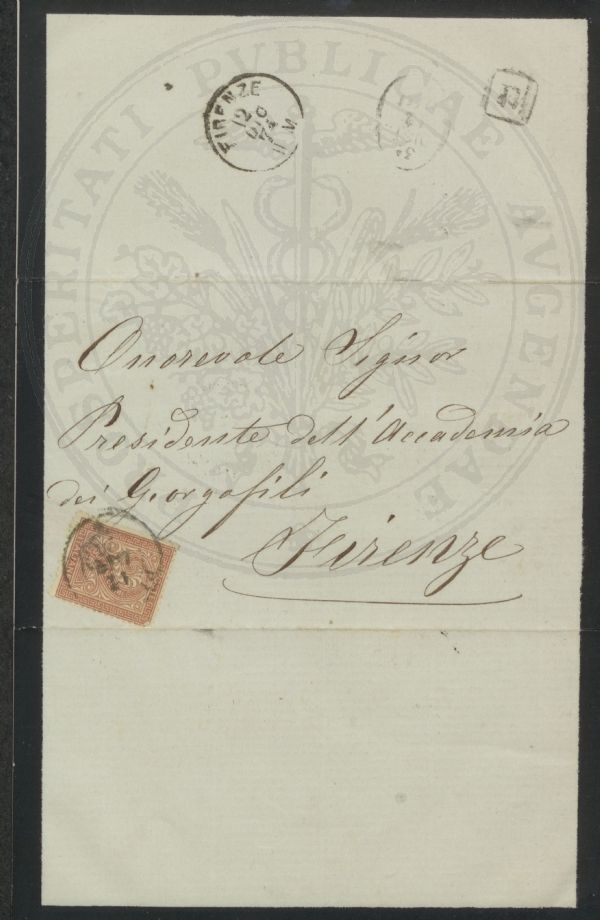 FIRENZE
12
DIC
74
11 M
PROSPERITATI PVBLICAE AVGENDAE
Onorevole Signor
Presidente dell'Accademia
dei Georgofili
Firenze